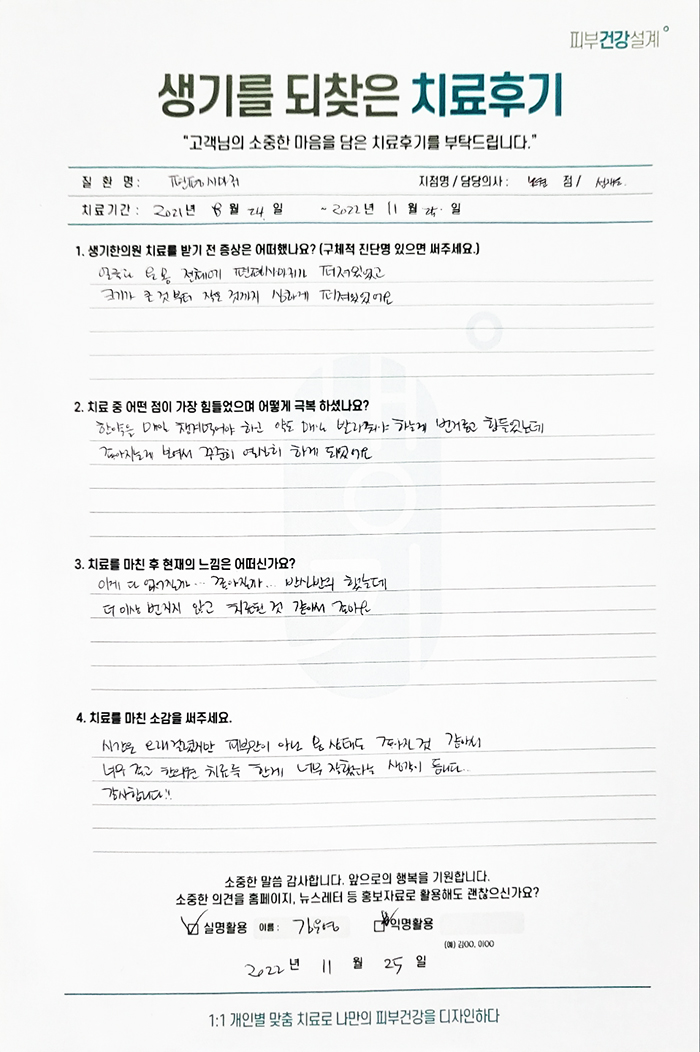 피부건강설계
생기를 되찾은 치료후기
"고객님의 소중한 마음을 담은 치료후기를 부탁드립니다."
질 환 명 : 편평사마귀 지점명 / 담당의사 : 노원 점 /
치료기간 : 2021년 8월 24일 ~ 2022년 11월 25일
1. 생기한의원 치료를 받기 전 증상은 어떠했나요? (구체적 진단명 있으면 써주세요.)
얼굴과 온몸 전체에 편평사마귀가 퍼져있었고
크기가 큰 것부터 작은 것까지 심하게 퍼져있었어요
2. 치료 중 어떤 점이 가장 힘들었으며 어떻게 극복 하셨나요?
한약을 매일 챙겨먹어야 하고 약도 매일 발라줘야 하는게 번거롭고 힘들었는데
좋아지는게 보여서 꾸준히 열심히 하게 되었어요
3. 치료를 마친 후 현재의 느낌은 어떠신가요?
이게 다 없어질까… 좋아질까… 반신반의 했는데
더 이상 번지지 않고 치료된 것 같아서 좋아요
4. 치료를 마친 소감을 써주세요.
시간은 오래 걸렸지만 피부만이 아닌 몸 상태도 좋아진 것 같아서
너무 좋고 한의원 치료를 한게 너무 잘했다는 생각이 듭니다..
감사합니다!!
소중한 말씀 감사합니다. 앞으로의 행복을 기원합니다.
소중한 의견을 홈페이지, 뉴스레터 등 홍보자료로 활용해도 괜찮으신가요?
실명활용 이름 : 김우영 익명활용
(예) 김OO, 이OO
2022년 11월 25일
1:1 개인별 맞춤 치료로 나만의 피부건강을 디자인하다